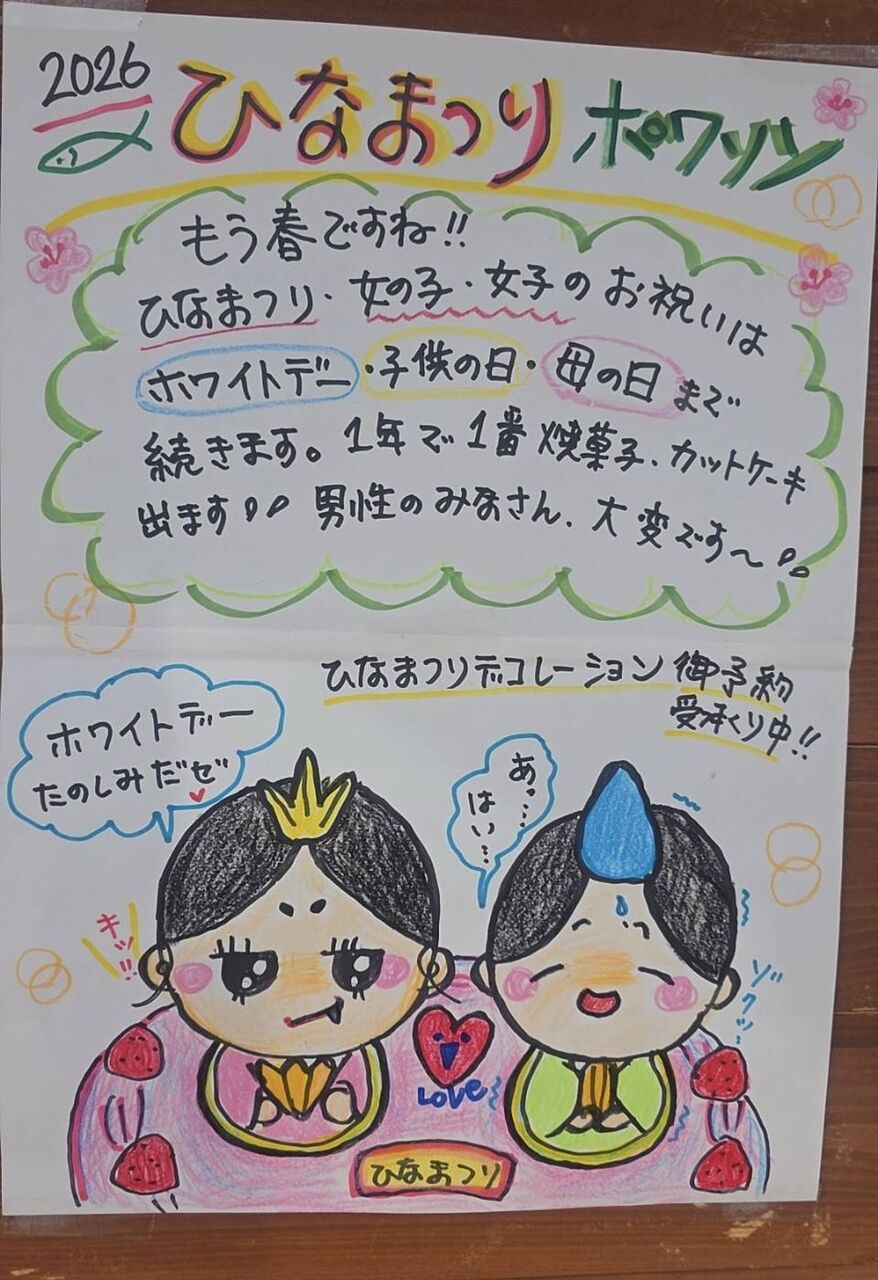 2026
ひなまつり ポワソン
もう春ですね!!
ひなまつり・女の子・女子のお祝いは
ホワイトデー・子供の日・母の日まで
続きます。1年で1番焼菓子、カットケーキ
出ます!! 男性のみなさん、大変です〜!!
ひなまつりデコレーション御予約
受承くり中!!
ホワイトデー
たのしみだゼ♥
あっ…
はい…
キッ!!
ゾクッ…
LOVE
ひなまつり